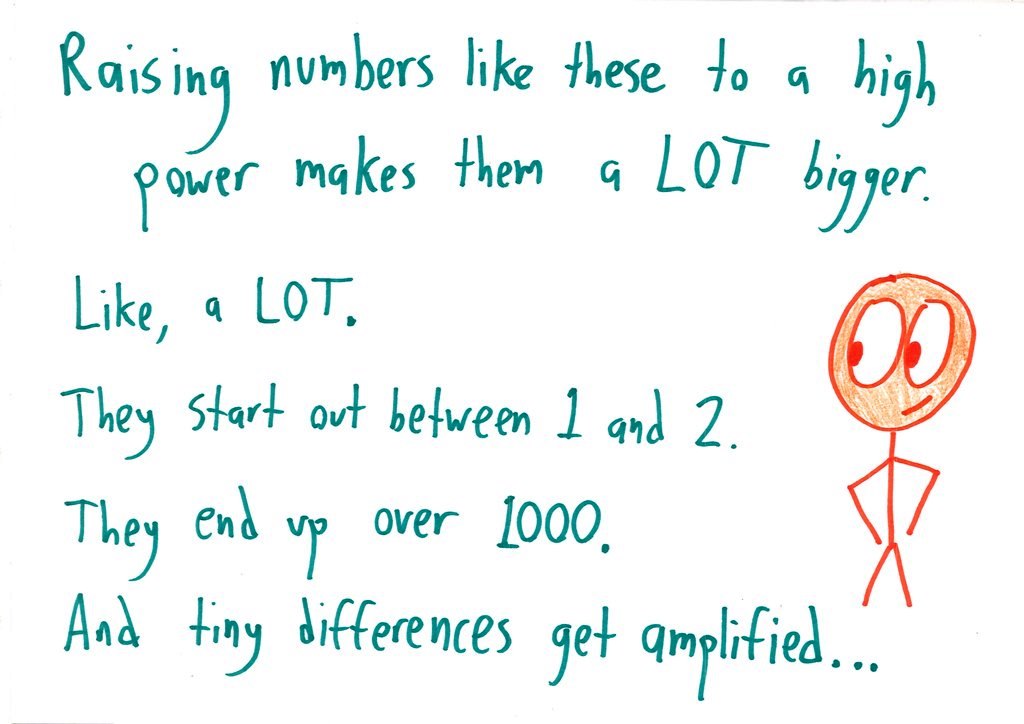 Raising numbers like these to a high
power makes them a LOT bigger.
Like, a LOT.
They start out between 1 and 2.
They end up over 1000.
And tiny differences get amplified...